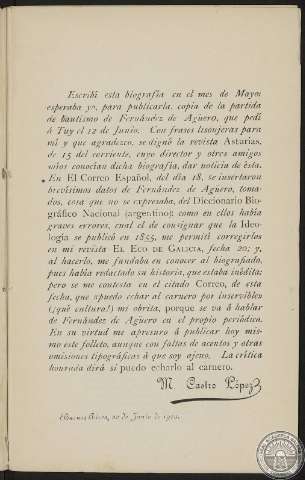 Escribí esta biografía en el mes de Mayo:
esperaba yo, para publicarla, copia de la partida
de bautismo de Fernández de Agüero, que pedí
á Tuy el 12 de Junio. Con frases lisonjeras para
mí y que agradezco, se dignó la revista Asturias,
de 15 del corriente, cuyo director y otros amigos
míos conocían dicha biografía, dar noticia de ésta.
En El Correo Español, del día 18, se insertaron
brevísimos datos de Fernández de Agüero, toma-
dos, cosa que no se expresaba, del Diccionario Bio-
gráfico Nacional (argentino): como en ellos había
graves errores, cual el de consignar que la Ideo-
logía se publicó en 1855, me permití corregirlos
en mi revista El Eco de Galicia, fecha 20; y,
al hacerlo, me fundaba en conocer al biografiado,
pues había redactado su historia, que estaba inédita:
pero se me contesta en el citado Correo, de esta
fecha, que ¡puedo echar al carnero por inservibles
(¡qué cultura!) mi obrita, porque se va á hablar
de Fernández de Agüero en el propio periódico.
En su virtud me apresuro á publicar hoy mis-
mo este folleto, aunque con faltas de acentos y otras
omisiones tipográficas á que soy ajeno. La crítica
honrada dirá si puedo echarlo al carnero.
M. Castro López
Buenos Aires, de de